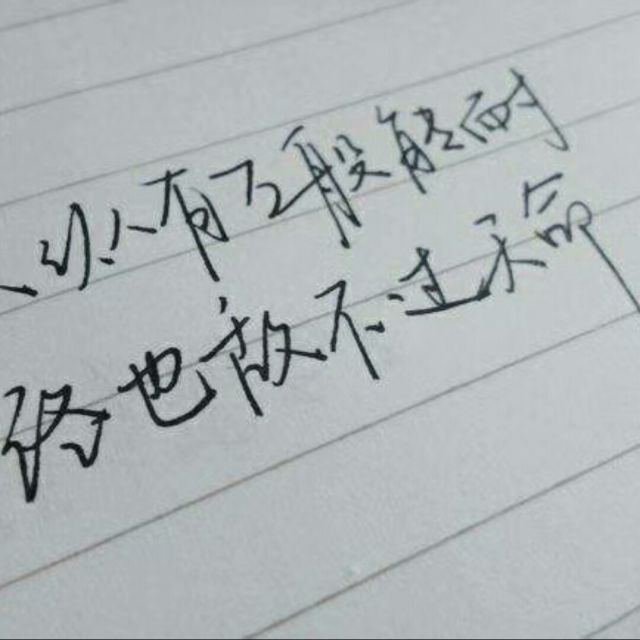 人纵有万般能耐
终也敌不过天命